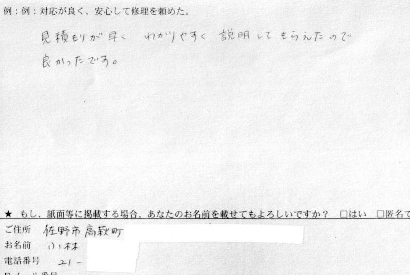 例：例：対応が良く、安心して修理を頼めた。
見積もりが早く わかりやすく 説明してもらえたので
良かったです。
★ もし、紙面等に掲載する場合、あなたのお名前を載せてもよろしいですか？ □はい □匿名で
ご住所 佐野市高萩町
お名前 小林
電話番号 21-